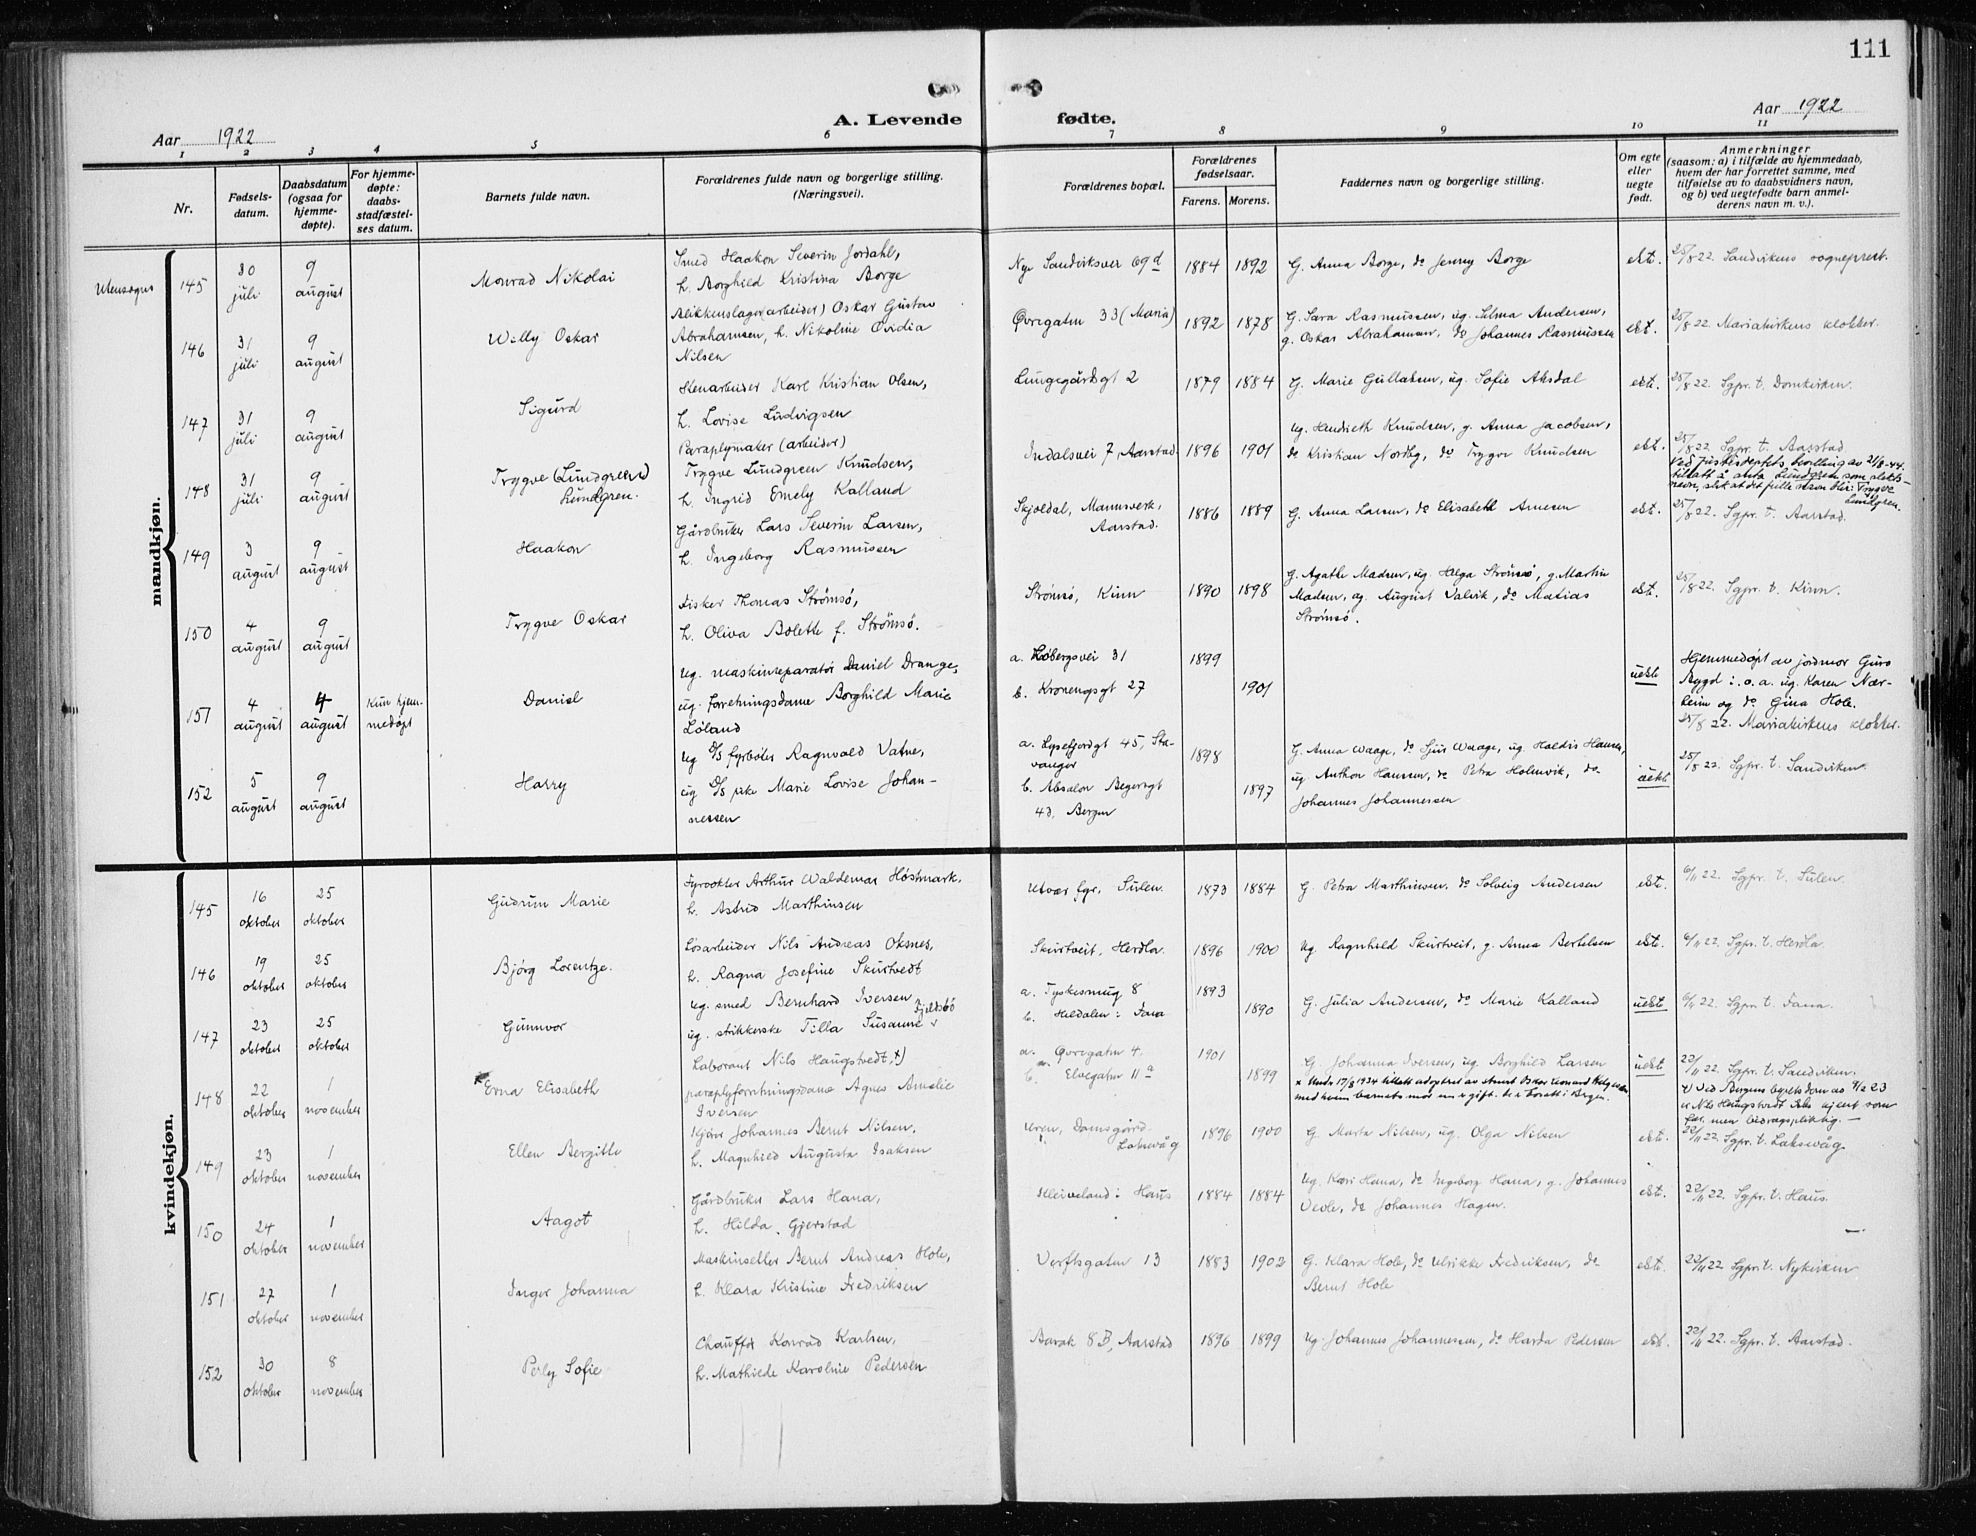 111
Aar 1922
A. Levende fødte.
Aar 1922
1 2 3 4 5 6 7 8 9 10 11
Nr.
Fødsels-
datum.
Daabsdatum
(ogsaa for
hjemme-
døpte).
For hjemme-
døpte:
daabs-
stadfæstel-
ses datum.
Barnets fulde navn.
Forældrenes fulde navn og borgerlige stilling.
(Næringsvei).
Forældrenes bopæl.
Forældrenes
fødselsaar.
Farens. Morens.
Faddernes navn og borgerlige stilling.
Om egte
eller
uegte
født.
Anmerkninger
(saasom: a) i tilfælde av hjemmedaab,
hvem der har forrettet samme, med
tilføielse av to daabsvidners navn,
og b) ved uegtefødte barn anmel-
derens navn m. v.).
mandkjøn.
Utensogns
145
30
juli
9
august
Monrad Nikolai
Smed Haakon Severin Jordahl,
h. Borghild Kristina Borge
Nye Sandviksvei 69d
1884 1892
G. Anna Borge, do Jenny Borge
ekt.
25/8 22. Sandvikens sogneprest.
146
31
juli
9
august
Willy Oskar
Blikkenslager (arbeider) Oskar Gustav
Abrahamsen, h. Nikoline Ovidia
Nilsen
Øvregaten 33 (Maria)
1892 1878
G. Sara Rasmussen, ug. Selma Andersen,
g. Oskar Abrahamsen, do Johannes Rasmussen
ekt.
25/8 22. Mariakirkens klokker.
147
31
juli
9
august
Sigurd
Stenarbeider Karl Kristian Olsen,
h. Lovise Ludvigsen
Lungegårdsgt 2
1879 1884
G. Marie Gullaksen, ug. Sofie Aksdal
ekt.
25/8 22. Sgpr. t. Domkirken.
148
31
juli
9
august
Trygve (Lundgreen)
Lundgren.
Paraplymaker (arbeider)
Trygve Lundgreen Knudsen,
h. Ingrid Emely Kalland
Indalsvei 7, Aarstad
1896 1901
Ug. Hendrikth Knudsen, g. Anna Jacobsen,
do Kristian Nordby, do Trygve Knudsen
ekt.
25/8 22. Sgpr. t. Aarstad
Ved Justisdeptets bevilling av 21/8-44
tillatt å anta Lundgren som slekts-
navn, slik at det fulle navn blir: Trygve
Lundgren.
149
3
august
9
august
Haakon
Gårdbruker Lars Severin Larsen,
h. Ingeborg Rasmussen
Skjoldal, Mannsverk,
Aarstad.
1886 1889
G. Anna Larsen, do Elisabeth Arnesen
ekt.
25/8 22. Sgpr. t. Aarstad.
150
4
august
9
august
Trygve Oskar
Fisker Thomas Strømsø,
h. Oliva Bolette f. Strømsø.
Strømsø, Kinn
1890 1898
G. Agathe Madsen, ug. Helga Strømsø, g. Martin
Madsen, ug. August Valvik, do Matias
Strømsø.
ekt.
25/8 22. Sgpr. t. Kinn.
151
4
august
4
august
Kun hjem-
medøpt
Daniel
Ug. maskinreparatør Daniel Drange,
ug. forretningsdame Borghild Marie
Løland
a. Løbergsvei 31
b. Kronengsgt 27
1899
1901
uekte
Hjemmedøpt av jordmor Guro
Bygd i o. a. ug. Karen Nær-
heim og do Gina Hole.
25/8 22. Mariakirkens klokker.
152
5
august
9
august
Harry
Ug D/S fyrbøter Ragnvald Vatne,
ug D/S pike Marie Lovise Johan-
nessen
a. Lysefjordgt 45, Sta-
vanger
b. Absalon Beyersgt
4d, Bergen
1898
1897
G. Anna Waage, do Sjur Waage, ug. Haldis Hansen,
ug. Anthon Hansen, do Petra Holmvik, do
Johannes Johannessen
uekte
25/8 22. Sgpr. t. Sandviken.
kvindekjøn.
145
16
oktober
25
oktober
Gudrun Marie
Fyrvokter Arthur Waldemar Høstmark,
h. Astrid Marthinsen
Utvær fyr, Sulen.
1873 1884
G. Petra Marthinsen, do Solveig Andersen
ekte.
6/11 22. Sgpr. t. Sulen.
146
19
oktober
25
oktober
Bjørg Lorentze.
Løsarbeider Nils Andreas Oksnes,
h. Ragna Josefine Skurtvedt
Skurtveit, Herdla.
1896 1900
Ug. Ragnhild Skurtveit, g. Anna Bertelsen
ekte.
6/11 22. Sgpr. t. Herdla.
147
23
oktober
25
oktober
Gunnvor
Ug. smed Bernhard Iversen
ug. strikkerske Tilla Susanne Fjeldsbø
a. Tyskesmug 8
b. Hildalen i Fana
1893
1890
G. Julia Andersen, do Marie Kalland
uekte
6/11 22. Sgpr. t. Fana.
148
22
oktober
1
november
x Erna Elisabeth
Laborant Nils Haugstvedt, †)
paraplyforretningsdame Agnes Amalie
Iversen
a. Øvregaten 4.
b. Elvegaten 11a
1901
1899
G. Johanna Iversen, ug. Borghild Larsen
x Under 17/8 1934 tillatt adoptert av
med hvem barnets mor er gift.
uekte
22/11 22. Sgpr. t. Sandviken.
†) Ved Bergens byretsdom av 9/2 23
er Nils Haugstvedt ikke kjent som
far, men bidragspliktig.
149
23
oktober
1
november
Ellen Bergitte
Kjører Johannes Bernt Nilsen,
h. Magnhild Augusta Isaksen
Uren, Damsgård
Laksevåg
1896 1900
G. Marta Nilsen, ug. Olga Nilsen
ekt.
22/11 22. Sgpr. t. Laksevåg
150
24
oktober
1
november
Aagot
Gårdbruker Lars Hana,
h. Hilda Gjerstad
Kleiveland i Haus
1884 1884
Ug. Kari Hana, do Ingeborg Hana, g. Johannes
Vevle, do Johannes Hagen.
ekt.
22/11 22. Sgpr. t. Haus.
151
27
oktober
1
november
Inger Johanna
Maskinseller Bernt Andreas Hole,
h. Klara Kristine Fredriksen
Verftsgaten 13
1883 1902
G. Klara Hole, do Ulrikke Fredriksen, do
Bernt Hole
ekt.
22/11 22. Sgpr. t. Nykirken
152
30
oktober
8
november
Perly Sofie
Chauffør Konrad Karlsen,
h. Mathilde Karoline Pedersen
Barak 8 B, Aarstad
1896 1899
Ug. Johannes Johannessen, do Harda Pedersen
ekt.
22/11 22. Sgpr. t. Aarstad.